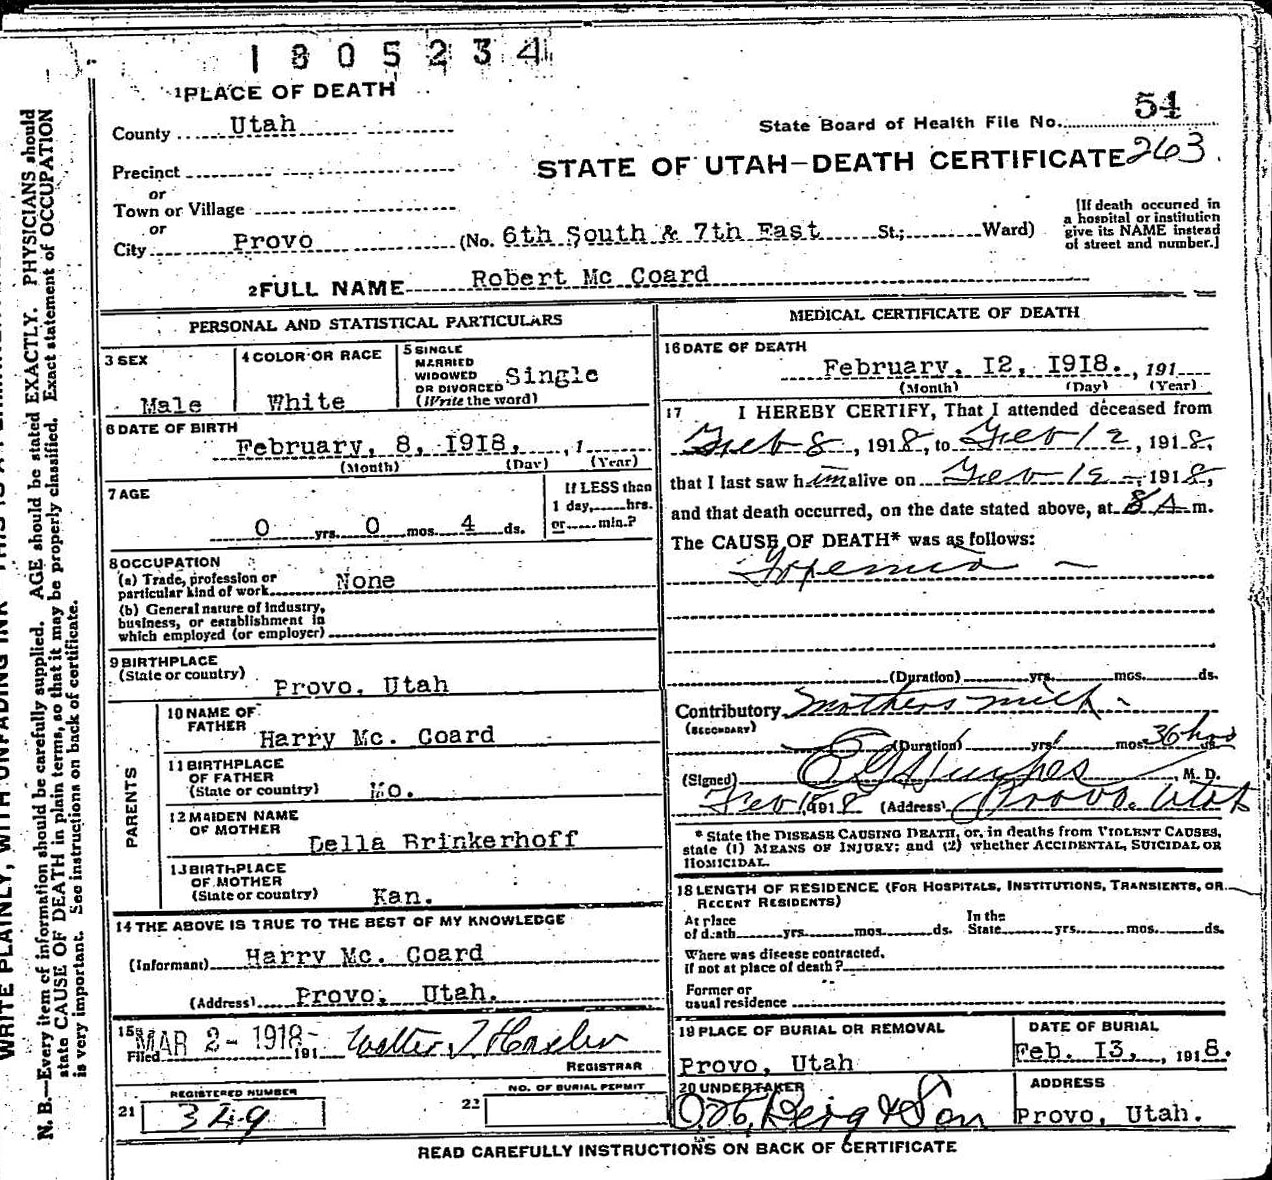 1805234
1 PLACE OF DEATH
County Utah
State Board of Health File No. 54
STATE OF UTAH—DEATH CERTIFICATE 263
Precinct
or
Town or Village
or
City Provo (No. 6th South & 7th East St.; Ward)
[If death occurred in
a hospital or institution
give its NAME instead
of street and number.]
2 FULL NAME Robert Mc Coard
PERSONAL AND STATISTICAL PARTICULARS
3 SEX
Male
4 COLOR OR RACE
White
5 SINGLE
MARRIED
WIDOWED
OR DIVORCED Single
(Write the word)
6 DATE OF BIRTH
February, 8, 1918, , 1
(Month) (Day) (Year)
7 AGE
0 yrs. 0 mos. 4 ds.
If LESS than
1 day, hrs.
or min.?
8 OCCUPATION
(a) Trade, profession or
particular kind of work None
(b) General nature of industry,
business, or establishment in
which employed (or employer)
9 BIRTHPLACE
(State or country)
Provo, Utah
PARENTS
10 NAME OF
FATHER
Harry Mc. Coard
11 BIRTHPLACE
OF FATHER
(State or country) Mo.
12 MAIDEN NAME
OF MOTHER
Della Brinkerhoff
13 BIRTHPLACE
OF MOTHER
(State or country) Kan.
14 THE ABOVE IS TRUE TO THE BEST OF MY KNOWLEDGE
(Informant) Harry Mc. Coard
(Address) Provo, Utah.
15
Filed MAR 2 - 1918 191 Walter T
REGISTRAR
REGISTERED NUMBER
21 349
NO. OF BURIAL PERMIT
22
MEDICAL CERTIFICATE OF DEATH
16 DATE OF DEATH
February, 12, 1918. , 191
(Month) (Day) (Year)
17 I HEREBY CERTIFY, That I attended deceased from
Feb 8, 1918, to Feb 12, 1918,
that I last saw him alive on Feb 12, 1918,
and that death occurred, on the date stated above, at 8 A m.
The CAUSE OF DEATH* was as follows:
(Duration) yrs. mos. ds.
Contributory Mothers milk
(SECONDARY)
(Duration) yrs. mos. 36 hrs ds.
(Signed) E G Hughes, M. D.
Feb 1918 (Address) Provo, Utah
* State the DISEASE CAUSING DEATH, or, in deaths from VIOLENT CAUSES,
state (1) MEANS OF INJURY; and (2) whether ACCIDENTAL, SUICIDAL OR
HOMICIDAL.
18 LENGTH OF RESIDENCE (FOR HOSPITALS, INSTITUTIONS, TRANSIENTS, OR
RECENT RESIDENTS)
At place
of death yrs. mos. ds.
In the
State yrs. mos. ds.
Where was disease contracted,
if not at place of death?
Former or
usual residence
19 PLACE OF BURIAL OR REMOVAL
Provo, Utah
DATE OF BURIAL
Feb. 13, , 1918.
20 UNDERTAKER
Berg & Son
ADDRESS
Provo, Utah.
READ CAREFULLY INSTRUCTIONS ON BACK OF CERTIFICATE
N. B.—Every item of information should be carefully supplied. AGE should be stated EXACTLY. PHYSICIANS should
state CAUSE OF DEATH in plain terms, so that it may be properly classified. Exact statement of OCCUPATION
is very important. See instructions on back of certificate.
WRITE PLAINLY, WITH UNFADING INK